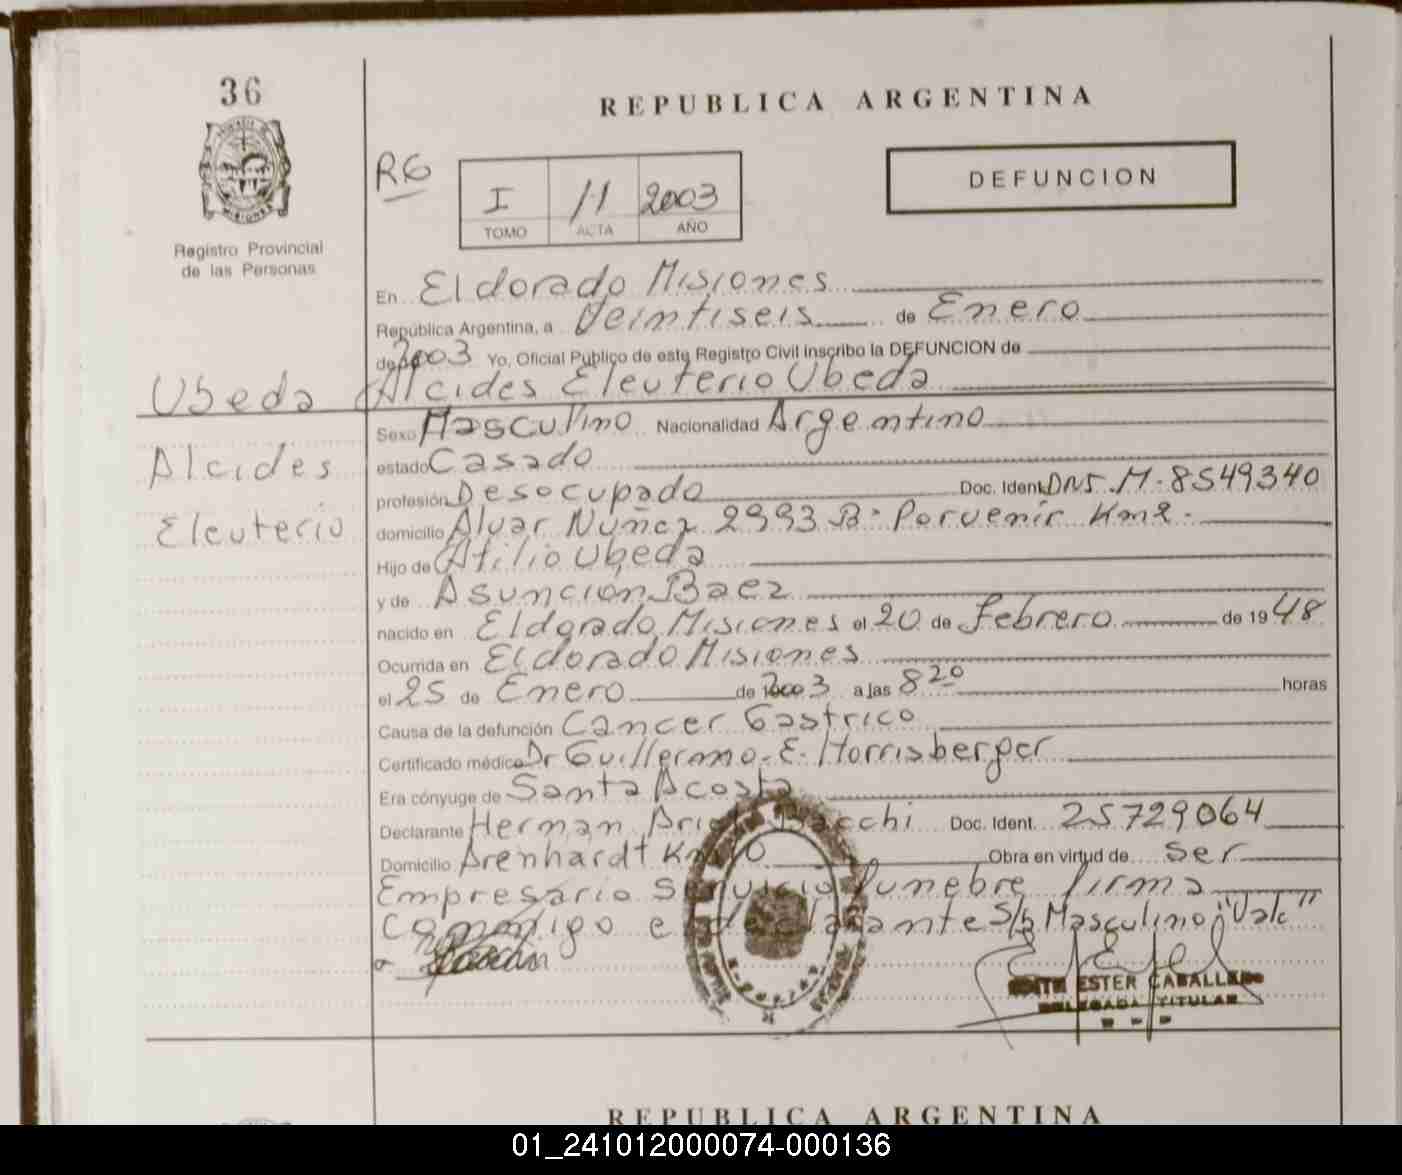 36
REPUBLICA ARGENTINA
R6
I 11 2003
TOMO ACTA AÑO
DEFUNCION
Registro Provincial
de las Personas
En Eldorado Misiones
República Argentina, a Veintiseis de Enero
de 2003 Yo, Oficial Público de este Registro Civil inscribo la DEFUNCION de
Ubeda Alcides Eleuterio Ubeda
Sexo Masculino Nacionalidad Argentino
Alcides
estado Casado
profesión Desocupado Doc. Ident. DNI. M. 8549340
Eleuterio
domicilio Alvar Nuñez 2993 B° Porvenir Km2.
Hijo de Atilio Ubeda
y de Asunción Baez
nacido en Eldorado Misiones el 20 de Febrero de 1948
Ocurrida en Eldorado Misiones
el 25 de Enero de 2003 a las 8 20 horas
Causa de la defunción Cancer Gastrico
Certificado médico Dr Guillermo E. Horrisberger
Era cónyuge de Santa Acosta
Declarante Herman Ariel Bacchi Doc. Ident. 25729064
Domicilio Arenhardt Km 10 Obra en virtud de ser
Empresario Servicio funebre firma
Conmigo el declarante S/b Masculino "Vale"
ESTER CABALLERO
DELEGADA TITULAR
REPUBLICA ARGENTINA
01_241012000074-000136